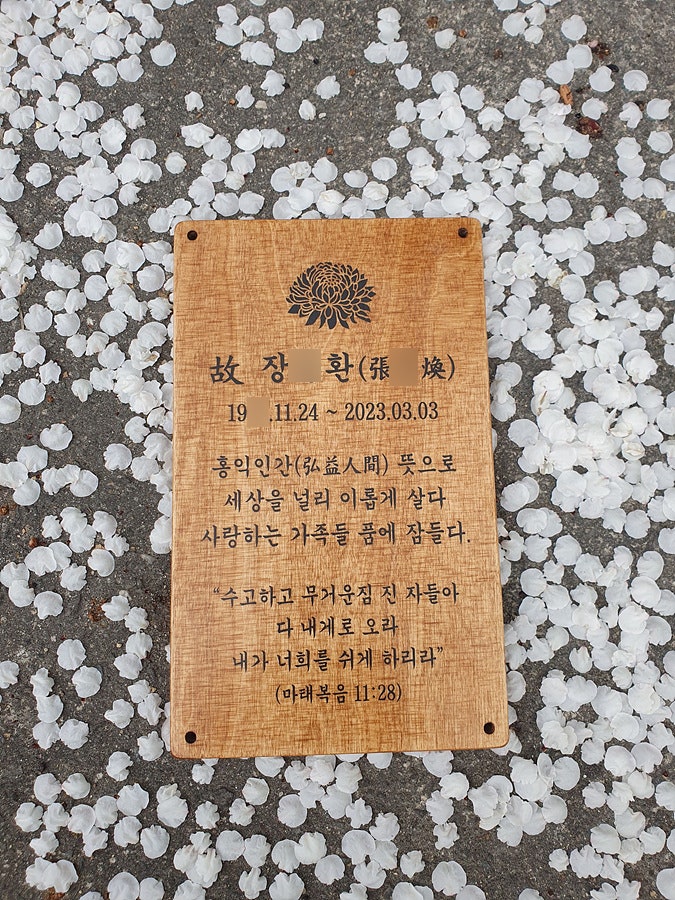 故 장 환(張 煥)
19 .11.24 ~ 2023.03.03
홍익인간(弘益人間) 뜻으로
세상을 널리 이롭게 살다
사랑하는 가족들 품에 잠들다.
“수고하고 무거운짐 진 자들아
다 내게로 오라
내가 너희를 쉬게 하리라”
(마태복음 11:28)